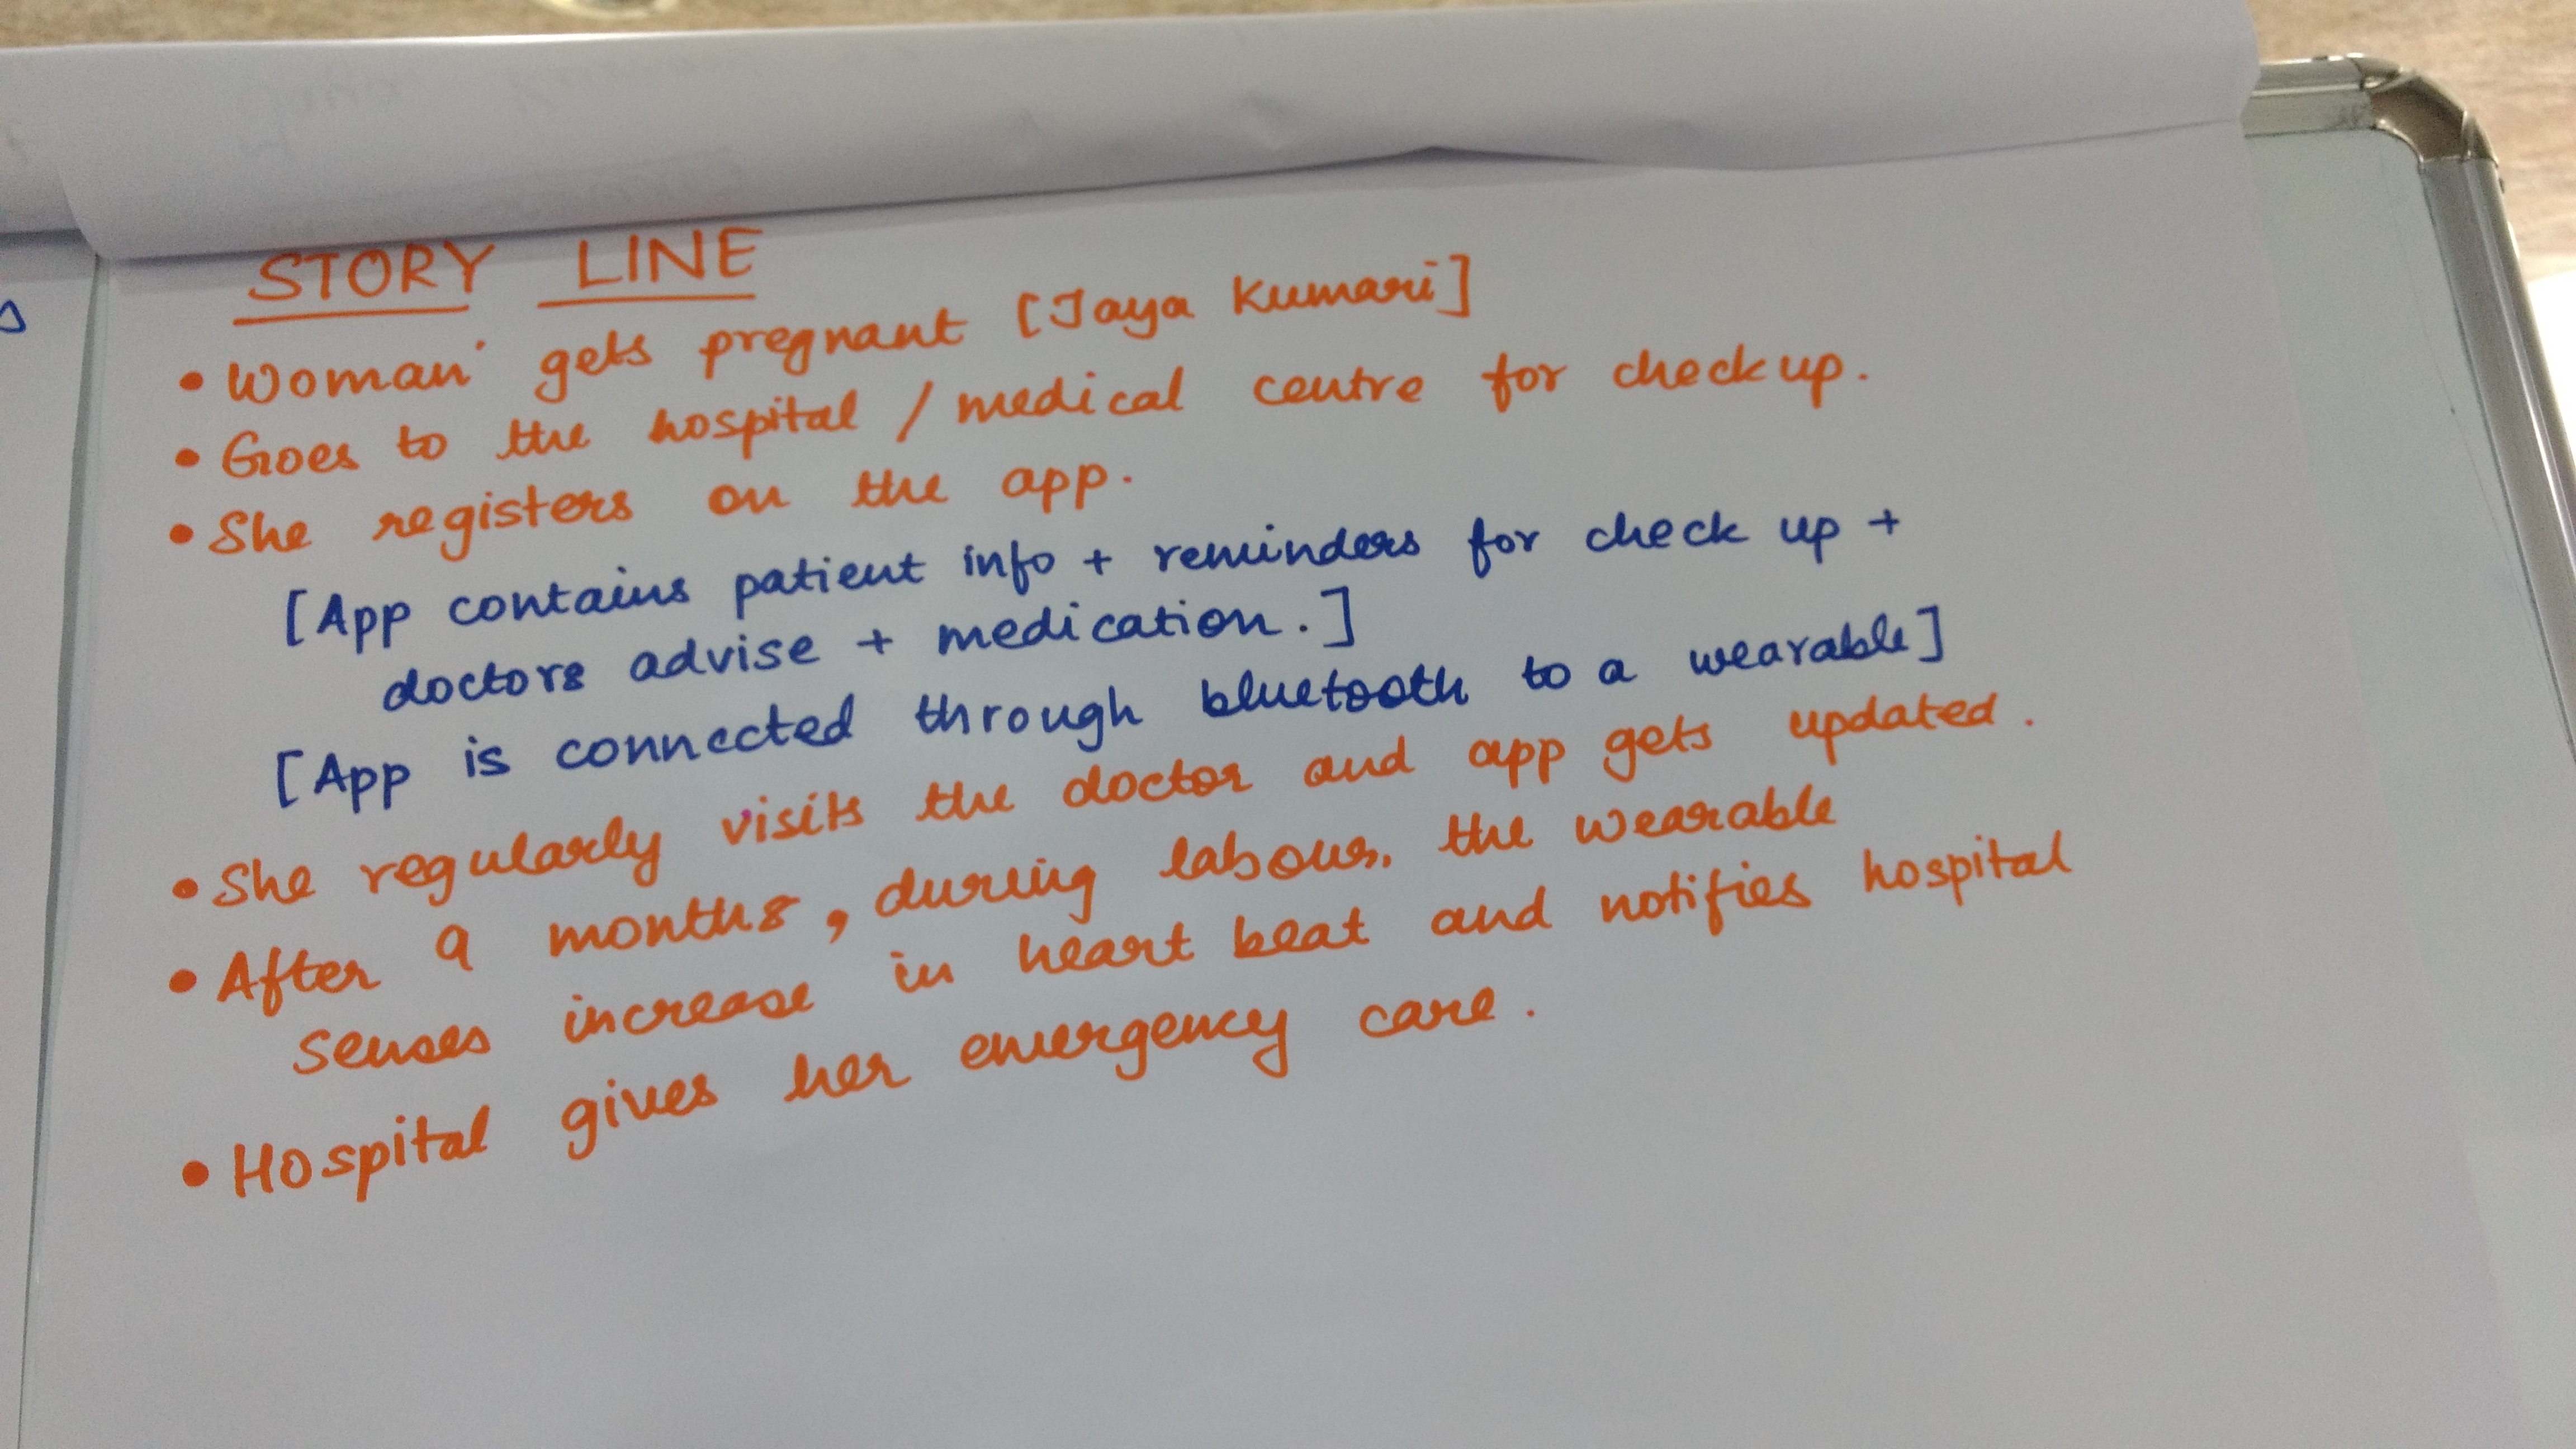 STORY LINE
• Woman gets pregnant [Jaya Kumari]
• Goes to the hospital / medical centre for checkup.
• She registers on the app.
[App contains patient info + reminders for check up +
doctors advise + medication.]
[App is connected through bluetooth to a wearable]
• She regularly visits the doctor and app gets updated.
• After 9 months, during labour, the wearable
senses increase in heart beat and notifies hospital
• Hospital gives her emergency care.